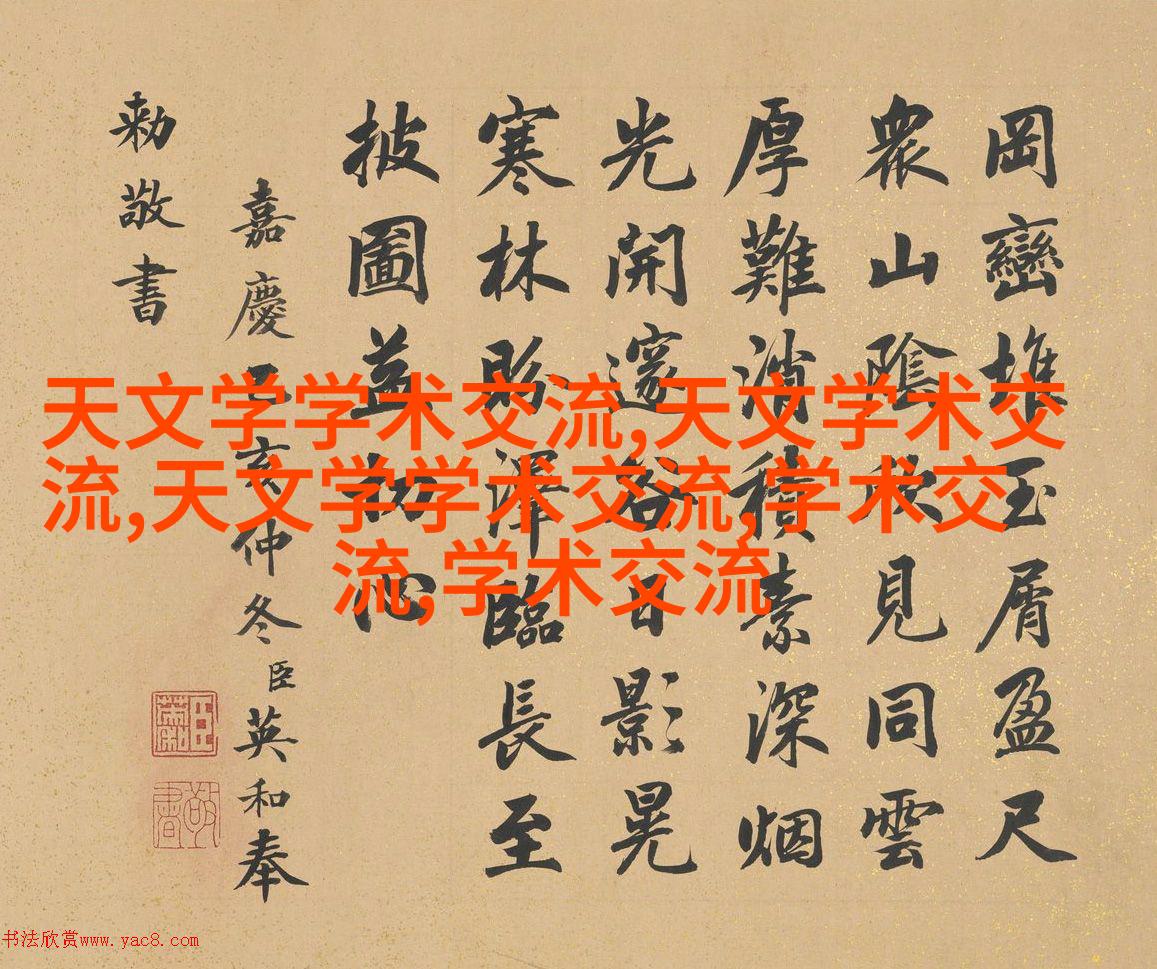 岡巒堆玉屑盈尺
衆山陰見同雲
厚難消積素深烟
光開邃谷日影晃
寒林賜澤臨長至
披圖益心
嘉慶乙亥仲冬臣英和奉
勅敬書
敬書
天文学学术交流,天文学术交
流,天文学学术交流,学术交
流,学术交流
书法欣赏www.yac8.com